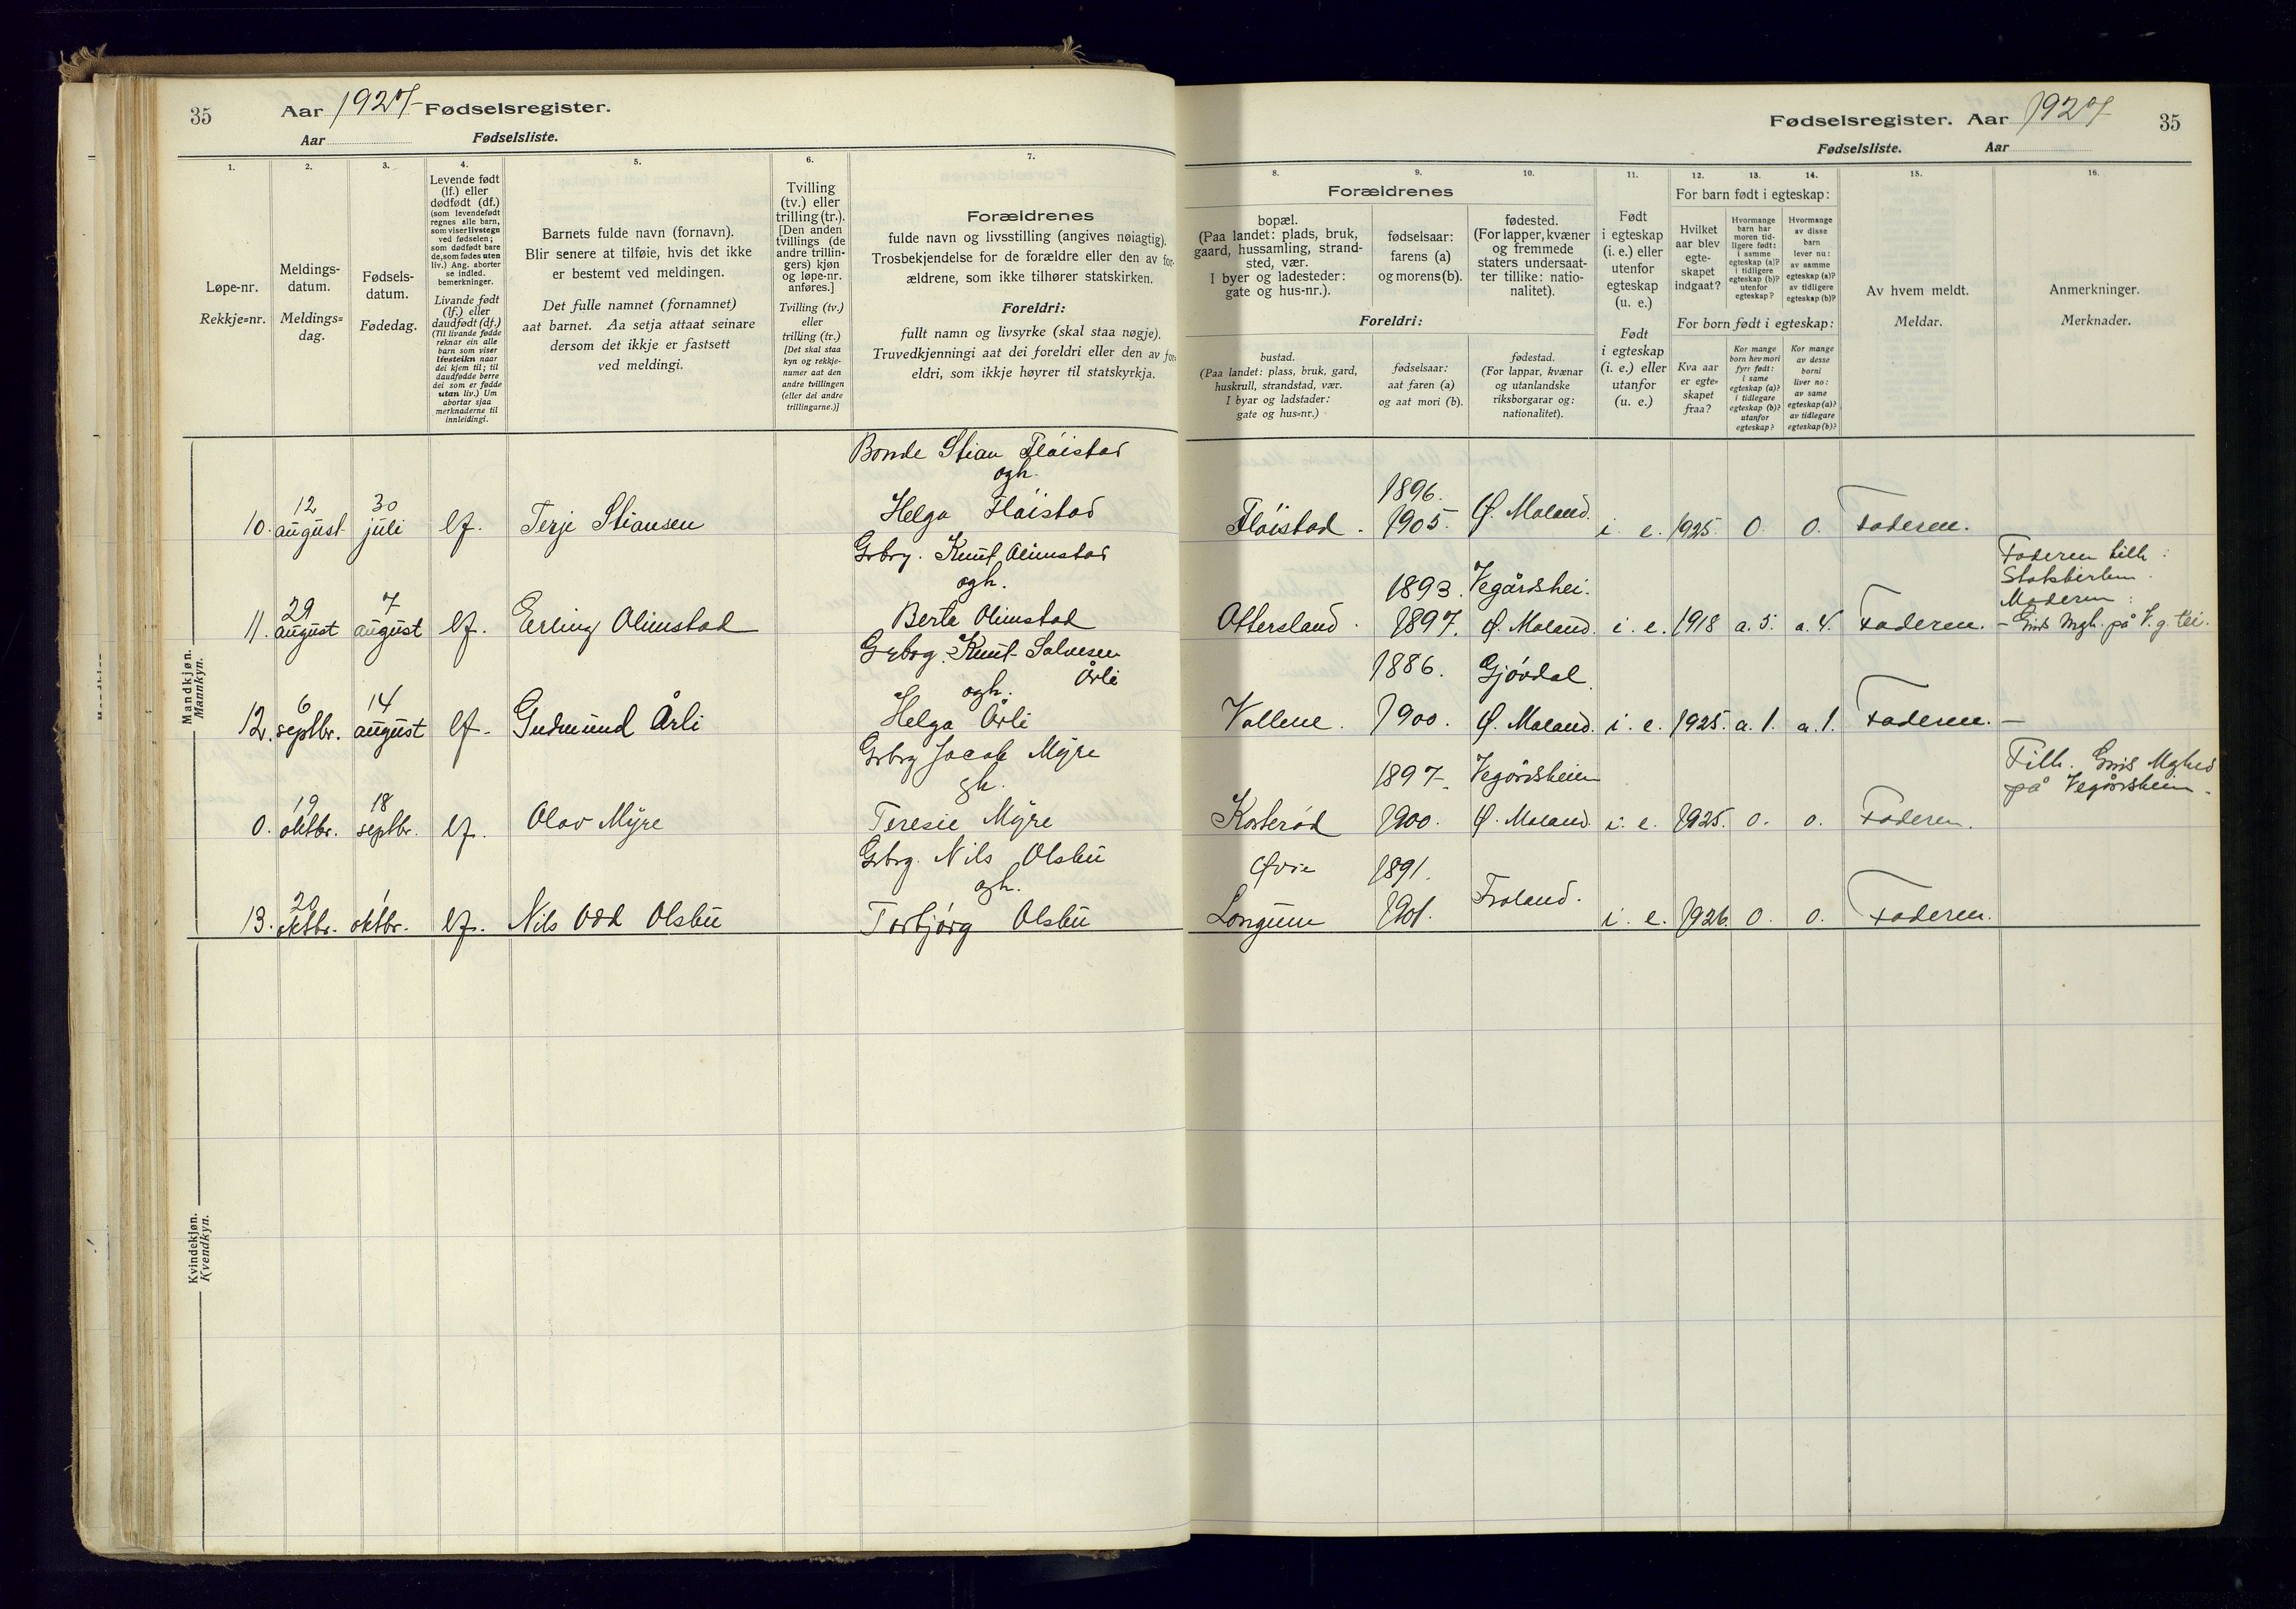 35
Aar 1927 Fødselsregister.
Aar Fødselsliste.
1.
2.
3.
4.
5.
6.
7.
Løpe-nr.
Rekkje=nr.
Meldings-
datum.
Meldings=
dag.
Fødsels-
datum.
Fødedag.
Levende født
(lf.) eller
dødfødt (df.)
(som levendefødt
regnes alle barn,
som viser livstegn
ved fødselen;
som dødfødt bare
de, som fødes uten
liv.) Ang. aborter
se indled.
bemerkninger.
Livande født
(lf.) eller
daudfødt (df.)
(Til livande fødde
reknar ein alle
barn som viser
livsteikn naar
dei kjem til; til
daudfødde berre
dei som er fødde
utan liv.) Um
abortar sjaa
merknaderne til
innleidingi.
Barnets fulde navn (fornavn).
Blir senere at tilføie, hvis det ikke
er bestemt ved meldingen.
Det fulle namnet (fornamnet)
aat barnet. Aa setja attaat seinare
dersom det ikkje er fastsett
ved meldingi.
Tvilling
(tv.) eller
trilling (tr.).
[Den anden
tvillings (de
andre trillin-
gers) kjøn
og løpe-nr.
anføres.]
Tvilling (tv.)
eller
trilling (tr.)
[Det skal staa
kyn og rekkje-
numer aat den
andre tvillingen
(eller dei andre
trillingarne.)]
Forældrenes
fulde navn og livsstilling (angives nøiagtig).
Trosbekjendelse for de forældre eller den av for-
ældrene, som ikke tilhører statskirken.
Foreldri:
fullt namn og livsyrke (skal staa nøgje).
Truvedkjenningi aat dei foreldri eller den av for-
eldri, som ikkje høyrer til statskyrkja.
Mandkjøn.
Mannkyn.
Bonde Stian Fløistad
ogh.
10. 12 august 30 juli lf. Terje Stiansen Helga Fløistad
Grbrg. Knut Olimstad
ogh.
11. 29 august 7 august lf. Erling Olimstad Berta Olimstad
Grbrg. Knut Salvesen
Årli
ogh.
12. 6 septbr. 14 august lf. Gudmund Årli Helga Årli
Grbrg Jacob Myre
gh.
0. 19 oktbr. 18 septbr. lf. Olav Myre Teresie Myre
Grbrg. Nils Olsbu
ogh.
13. 20 oktbr. 1 oktbr. lf. Nils Odd Olsbu Torbjørg Olsbu
Kvindekjøn.
Kvendkyn.
Fødselsregister. Aar 1927 35
Fødselsliste. Aar
8.
9.
10.
11.
12.
13.
14.
15.
16.
Forældrenes
bopæl.
(Paa landet: plads, bruk,
gaard, hussamling, strand-
sted, vær.
I byer og ladesteder:
gate og hus-nr.).
fødselsaar:
farens (a)
og morens (b).
fødested.
(For lapper, kvæner
og fremmede
staters undersaat-
ter tillike: natio-
nalitet).
Foreldri:
bustad.
(Paa landet: plass, bruk, gard,
huskrull, strandstad, vær.
I byar og ladstader:
gate og hus=nr.)
fødselsaar:
aat faren (a)
og aat mori (b).
fødestad.
(For lappar, kvænar
og utanlandske
riksborgarar og:
nationalitet).
Født
i egteskap
(i. e.) eller
utenfor
egteskap
(u. e.)
Født
i egteskap
(i. e.) eller
utanfor
(u. e.)
For barn født i egteskap:
Hvilket
aar blev
egte-
skapet
indgaat?
Hvormange
barn har
moren tid-
ligere født:
i samme
egteskap (a)?
i tidligere
egteskap (b)?
utenfor
egteskap?
Hvormange
av disse
barn
lever nu:
av samme
egteskap (a)?
av tidligere
egteskap (b)?
For born født i egteskap:
Kva aar
er egte=
skapet
fraa?
Kor mange
born hev mori
fyrr født:
i same
egteskap (a)?
i tidlegare
egteskap (b)?
utanfor
egteskap?
Kor mange
av desse
borni
liver no:
av same
egteskap (a)?
av tidlegare
egteskap (b)?
Av hvem meldt.
Meldar.
Anmerkninger.
Merknader.
1896.
Fløistad. 1905. Ø. Moland. i. e. 1925. 0. 0. Faderen.
Faderen tilh:
Statskirken.
Moderen:
1893. Vegårdshei.
Ottersland. 1897. Ø. Moland. i. e. 1918 a. 5. a. 4. Faderen.
1886. Gjøvdal.
Vollene. 1900. Ø. Moland. i. e. 1925. a. 1. a. 1. Faderen. —
1897. Vegårdsheien
Tilh.
på Vegårsheien.
Kosterød 1900. Ø. Moland. i. e. 1925. 0. 0. Faderen.
Øvre 1891.
Froland.
Longum 1901. i. e. 1926. 0. 0. Faderen.